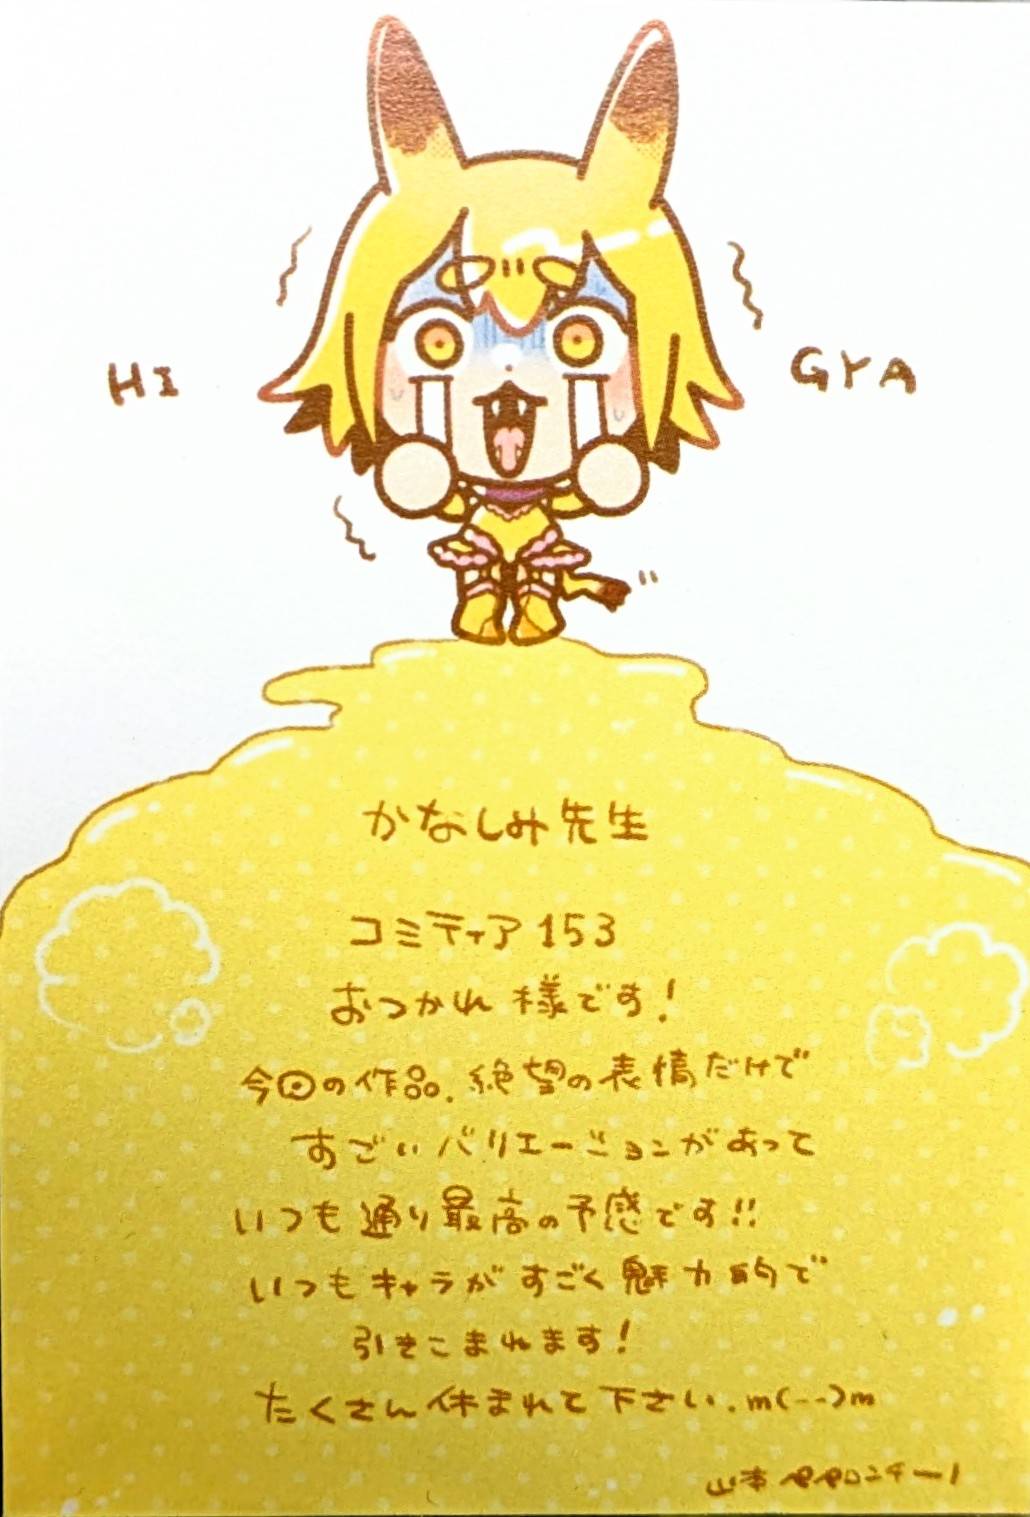 HI
GYA
かなしみ先生
コミティア153
おつかれ様です！
今回の作品、絶望の表情だけで
すごいバリエーションがあって
いつも通り最高の予感です!!
いつもキャラがすごく魅力的で
引きこまれます！
たくさん休まれて下さい、m(--)m
山本ペペロンチーノ